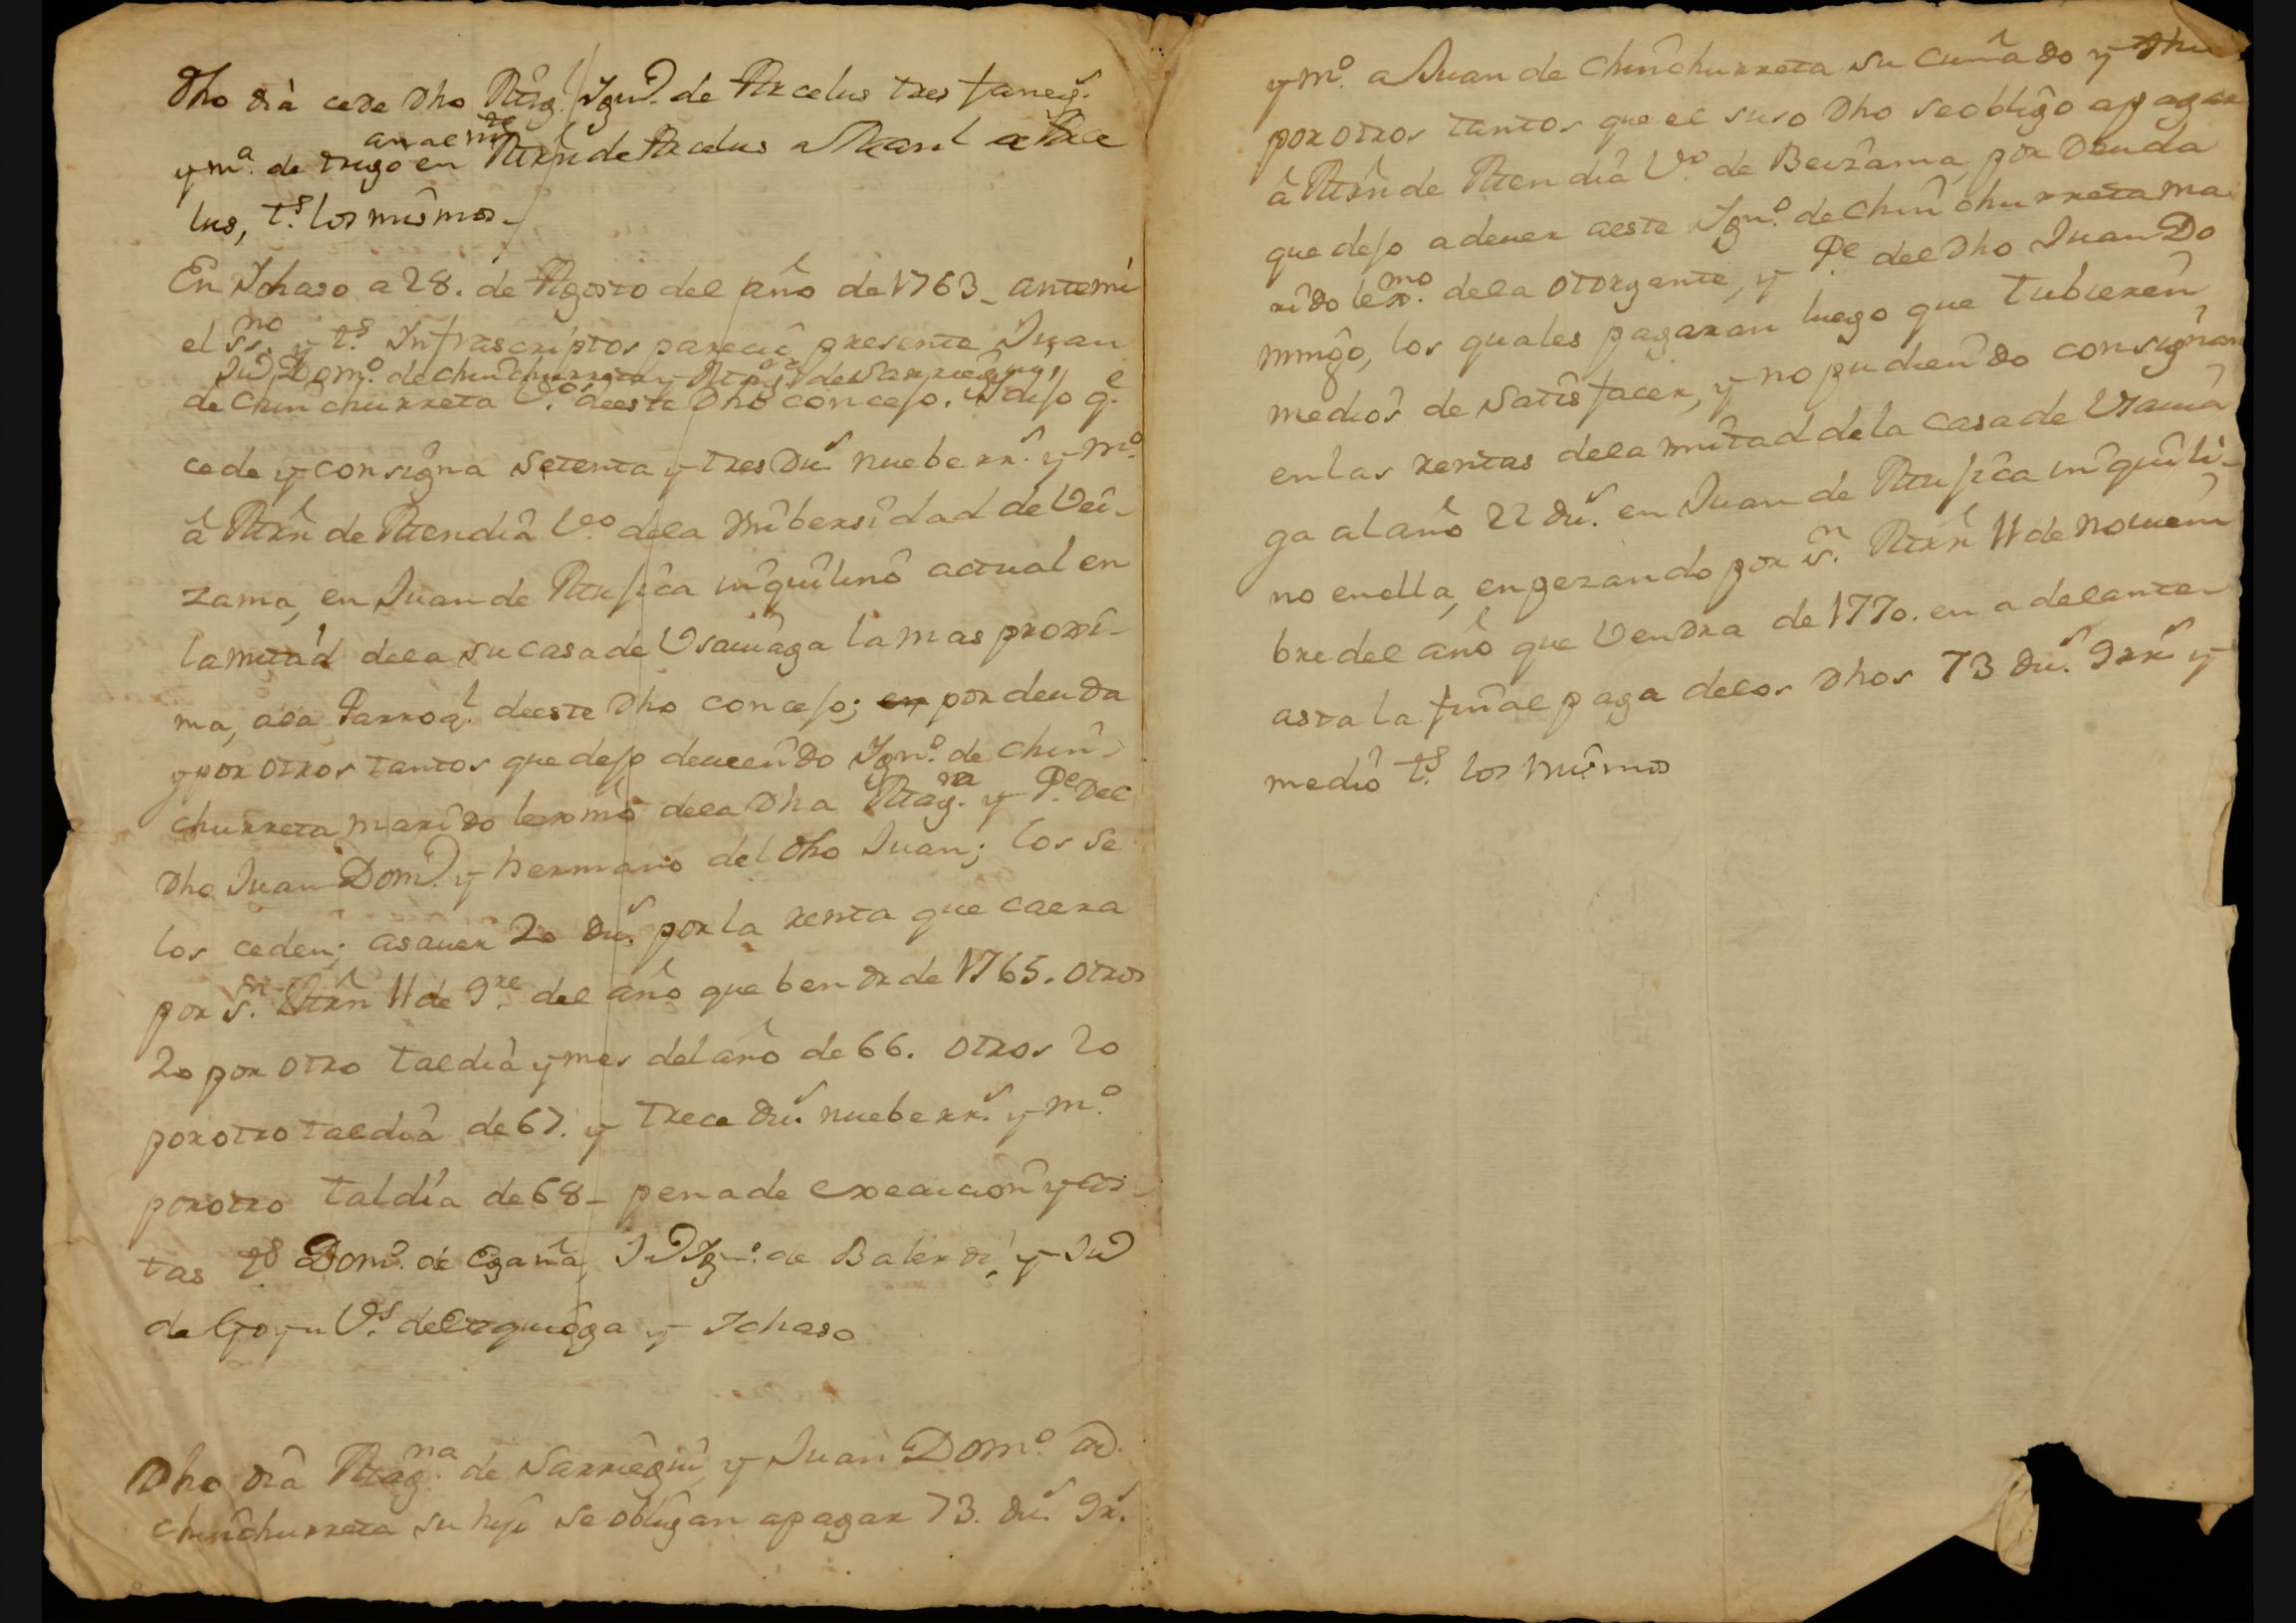 Dho dia cede Dho Mig.l Ign.o de Arcelus tres faneg.s
anaem.te
y m.a de trigo en Mrñ de Arcelus a Man.l de Arce
lus, t.s los mismos _
En Ichaso a 28. de Agosto del año de 1763 _ ante mi
el ss.no y t.s Infrascriptos parecio presente Juan
Ju.o Dom.o de chinchurreta y Mag.na de Sarriegui,
de Chinchurreta V.o de este Dho concejo. Y dijo q.e
cede y consigna setenta y tres Du.s nuebe rr.s y m.o
â Mrñ de Mendiâ V.o dela Unibersidad de Vei-
zama, en Juan de Mujica inquilino actual en
la mitad dela su casa de Usauiaga la mas proxi-
ma, ala Parroq.l de este Dho concejo; en por deuda
y por otros tantos que dejo deuiendo Ign.o de Chin-
churreta marido lexmo dela Dha Mag.na y P.e Del
Dho Juan Dom.o y hermano del Dho Juan; los se
los ceden; asauer 20 Du.s por la renta que caera
por S.n Mrñ 11 de 9.re del año que bendr de 1765. otros
20 por otro tal dia y mes del año de 66. otros 20
por otro tal dia de 67. y trece Du.s nuebe rr.s y m.o
por otro tal dia de 68 _ pena de execucion y cos-
tas t.s Dom.o de Egaña, J.o Ign.o de Balerdi, y Ju.o
de Goyu V.s de Ezquioga y Ichaso
Dho dia Mag.na de Sarriegui y Juan Dom.o de
chinchurreta su hijo se obligan apagar 73. Du.s 9 r.s
y m.o a Juan de Chinchurreta su cuñado y
por otros tantos que el suso Dho se obligo apagar
â Mrñ de Mendiâ V.o de Beizama, por Deuda
que dejo adeuer a este Ign.o de Chinchurreta ma
rido lex.mo dela otorgante, y P.e del Dho Juan Do
mingo, los quales pagaran luego que tubieren
medios de satisfacer, y no pudiendo consignan
en las rentas dela mitad dela casa de Usauia
ga al año 22 du.s en Juan de Mujica inquili-
no en ella, enpezando por S.n Mrñ 11 de Nouiem
bre del año que Vendra de 1770. en adelante
asta la final paga delos Dhos 73 du.s 9 rr.s y
medio t.s los mismos